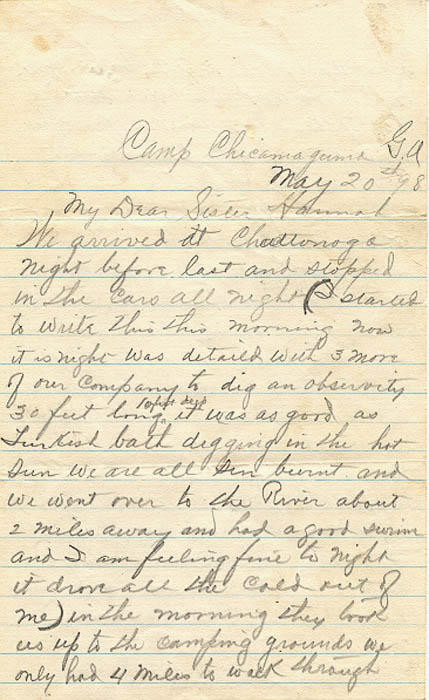 Camp Chicamaguma G,A
May 20th 98
My Dear Sister Hannah
We arrived at Chattonoga
night before last and stopped
in the cars all night (I started
to write this this morning now
it is night was detailed with 3 more
of our company to dig an observity
30 feet long 10 feet deep it was as good as
Turkish bath digging in the hot
sun we are all sun burnt and
we went over to the River about
2 miles away and had a good swim
and I am feeling fine to night
it drove all the cold out of
me) in the morning they took
us up to the camping grounds we
only had 4 miles to walk through